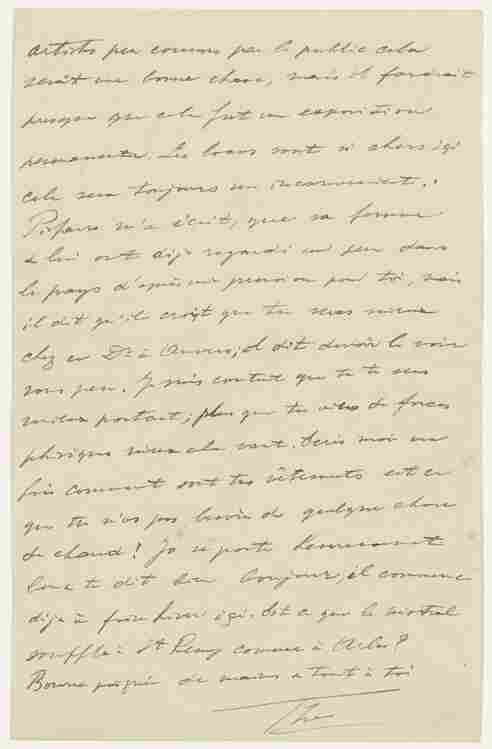 artistes peu connus par le public cela
serait une bonne chose, mais il faudrait
presque que cela fut une exposition
permanente. Les locaux sont si chers ici
cela sera toujours un inconvenient.
Pissarro m'a écrit, que sa femme
& lui ont déja regardé un peu dans
le pays d'après une pension pour toi, mais
il dit qu'il croit que tu seras mieux
chez ce Dr à Auvers, il dit devoir le voir
sous peu. Je suis content que tu te sens
mieux portant; plus que tu as de forces
physiques mieux cela vaut. Ecris moi une
fois comment sont tes vêtements est ce
que tu n'as pas besoin de quelque chose
de chaud! Jo se porte heureusement
bien & te dit bien bonjour, il commence
déja à faire hiver ici. Est ce que le mistral
souffle à St Remy comme à Arles?
Bonne poignée de mains & tout à toi
Theo